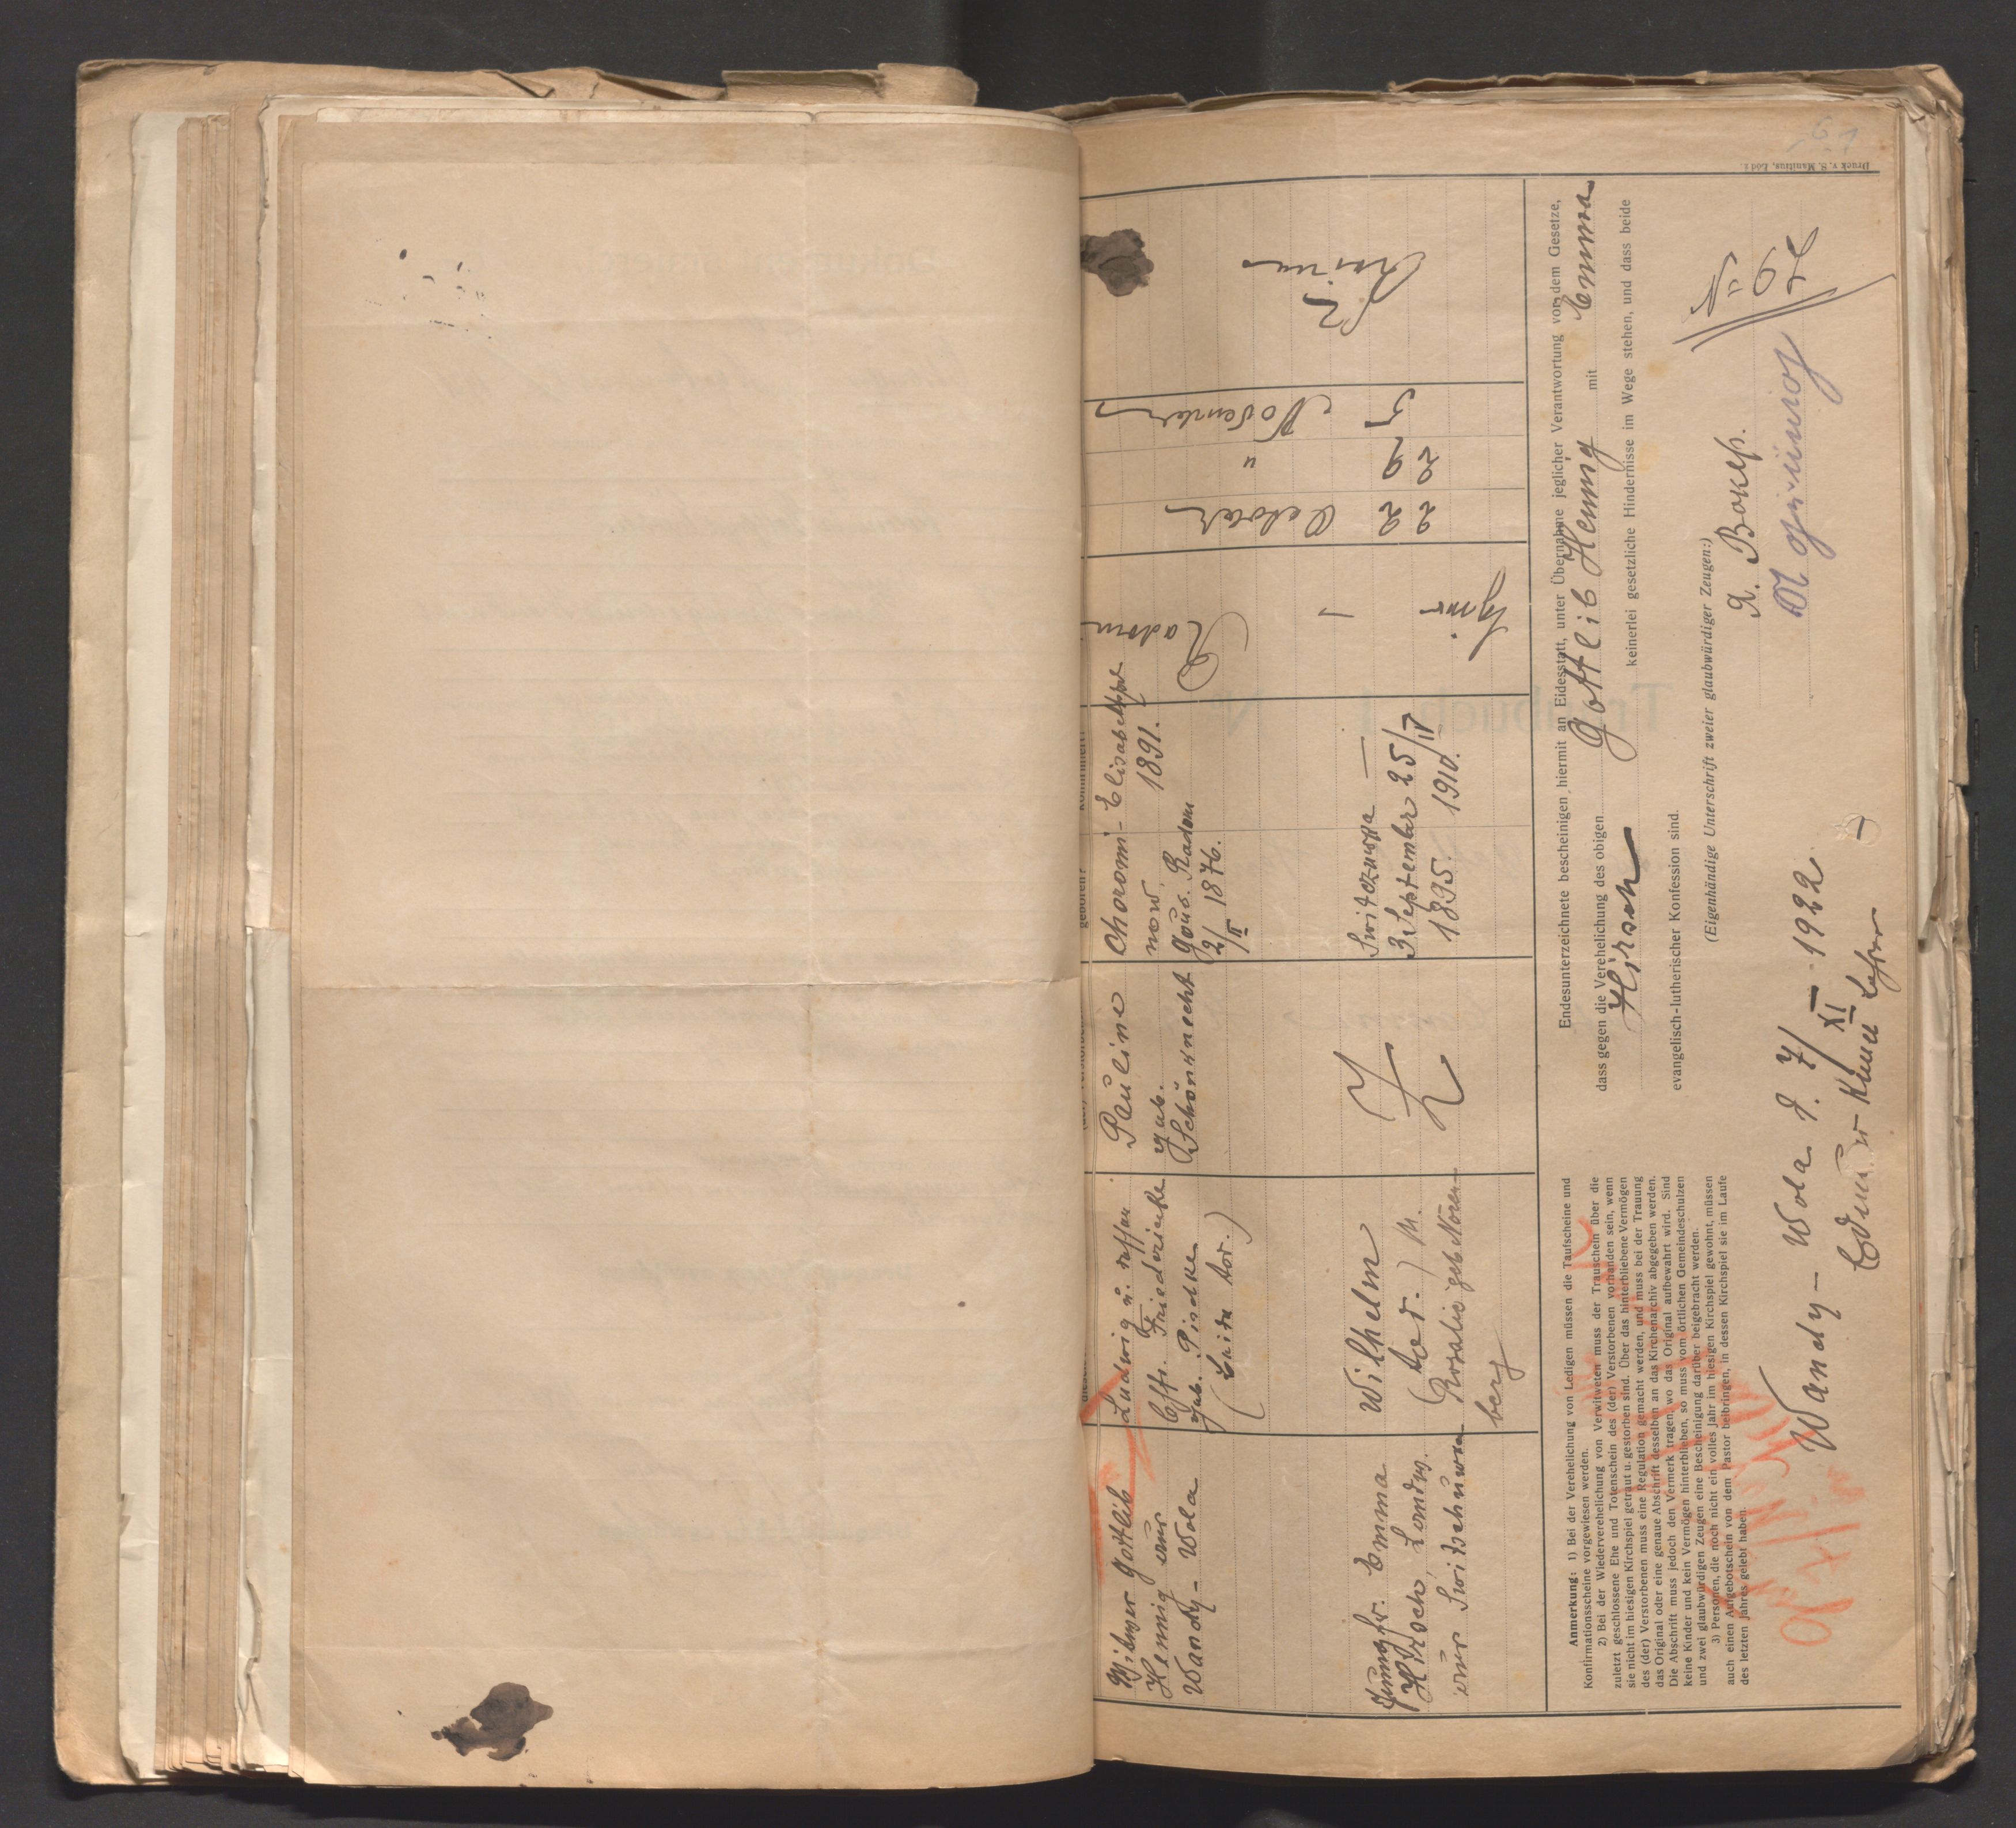 Witwer Gottlib
Hennig aus
Wandy-Wola
Ludwig u. dessen
Ehfr. Friederieke
geb. Pisdke
(beide tot.)
Pauline
geb.
Schönknecht
Choromi-
now
Gouv. Radom
2/II 1876.
Elisabethpol
1891.
Radom
22 October
29 "
5 November
Jungfr. Emma
Hirsch, Landw.
aus Switschuwka
Wilhelm
(tot.) u.
Rosalie geb. Nören-
berg
Switczuwka
3 September
1895.
25/IV
1910.
Endesunterzeichnete bescheinigen hiermit an Eidesstatt, unter Übernahme jeglicher Verantwortung vor dem Gesetze,
dass gegen die Verehelichung des obigen Gottlib Hennig mit Emma
Hirsch keinerlei gesetzliche Hindernisse im Wege stehen, und dass beide
evangelisch-lutherischer Konfession sind.
(Eigenhändige Unterschrift zweier glaubwürdiger Zeugen:)
Anmerkung: 1) Bei der Verehelichung von Ledigen müssen die Taufscheine und
Konfirmationsscheine vorgewiesen werden.
2) Bei der Wiederverehelichung von Verwitweten muss der Trauschein über die
zuletzt geschlossene Ehe und Totenschein des (der) Verstorbenen vorhanden sein, wenn
sie nicht im hiesigen Kirchspiel getraut u. gestorben sind. Über das hinterbliebene Vermögen
des (der) Verstorbenen muss eine Regulation gemacht werden, und muss bei der Trauung
das Original oder eine genaue Abschrift desselben an das Kirchenarchiv abgegeben werden.
Die Abschrift muss jedoch den Vermerk tragen, wo das Original aufbewahrt wird. Sind
keine Kinder und kein Vermögen hinterblieben, so muss vom örtlichen Gemeindeschulzen
und zwei glaubwürdigen Zeugen eine Bescheinigung darüber beigebracht werden.
3) Personen, die noch nicht ein volles Jahr im hiesigen Kirchspiel gewohnt, müssen
auch einen Aufgebotschein von dem Pastor beibringen, in dessen Kirchspiel sie im Laufe
des letzten Jahres gelebt haben.
Wandy-Wola d. 7/XI 1922
Lehrer
Druck v. S. Manitius, Łódź.